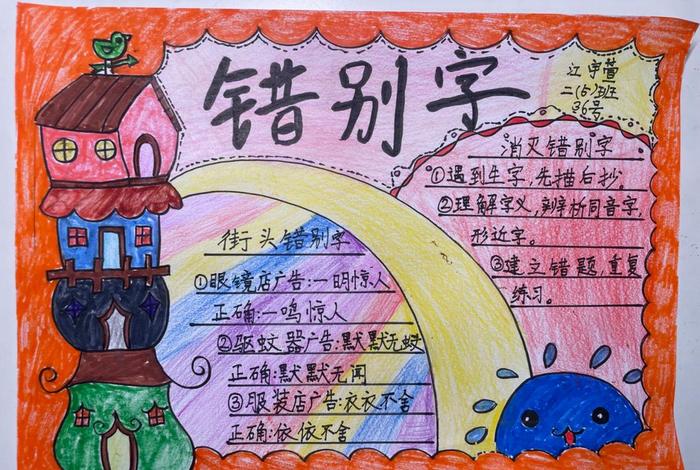 错别字
江宇萱
二(5)班
36号
街头错别字
①眼镜店广告:一明惊人
正确:一鸣惊人
②驱蚊器广告:默默无蚊
正确:默默无闻
③服装店广告:衣衣不舍
正确:依依不舍
消灭错别字
①遇到生字,先描后抄。
②理解字义,辨析同音字,
形近字。
③建立错题,重复
练习。